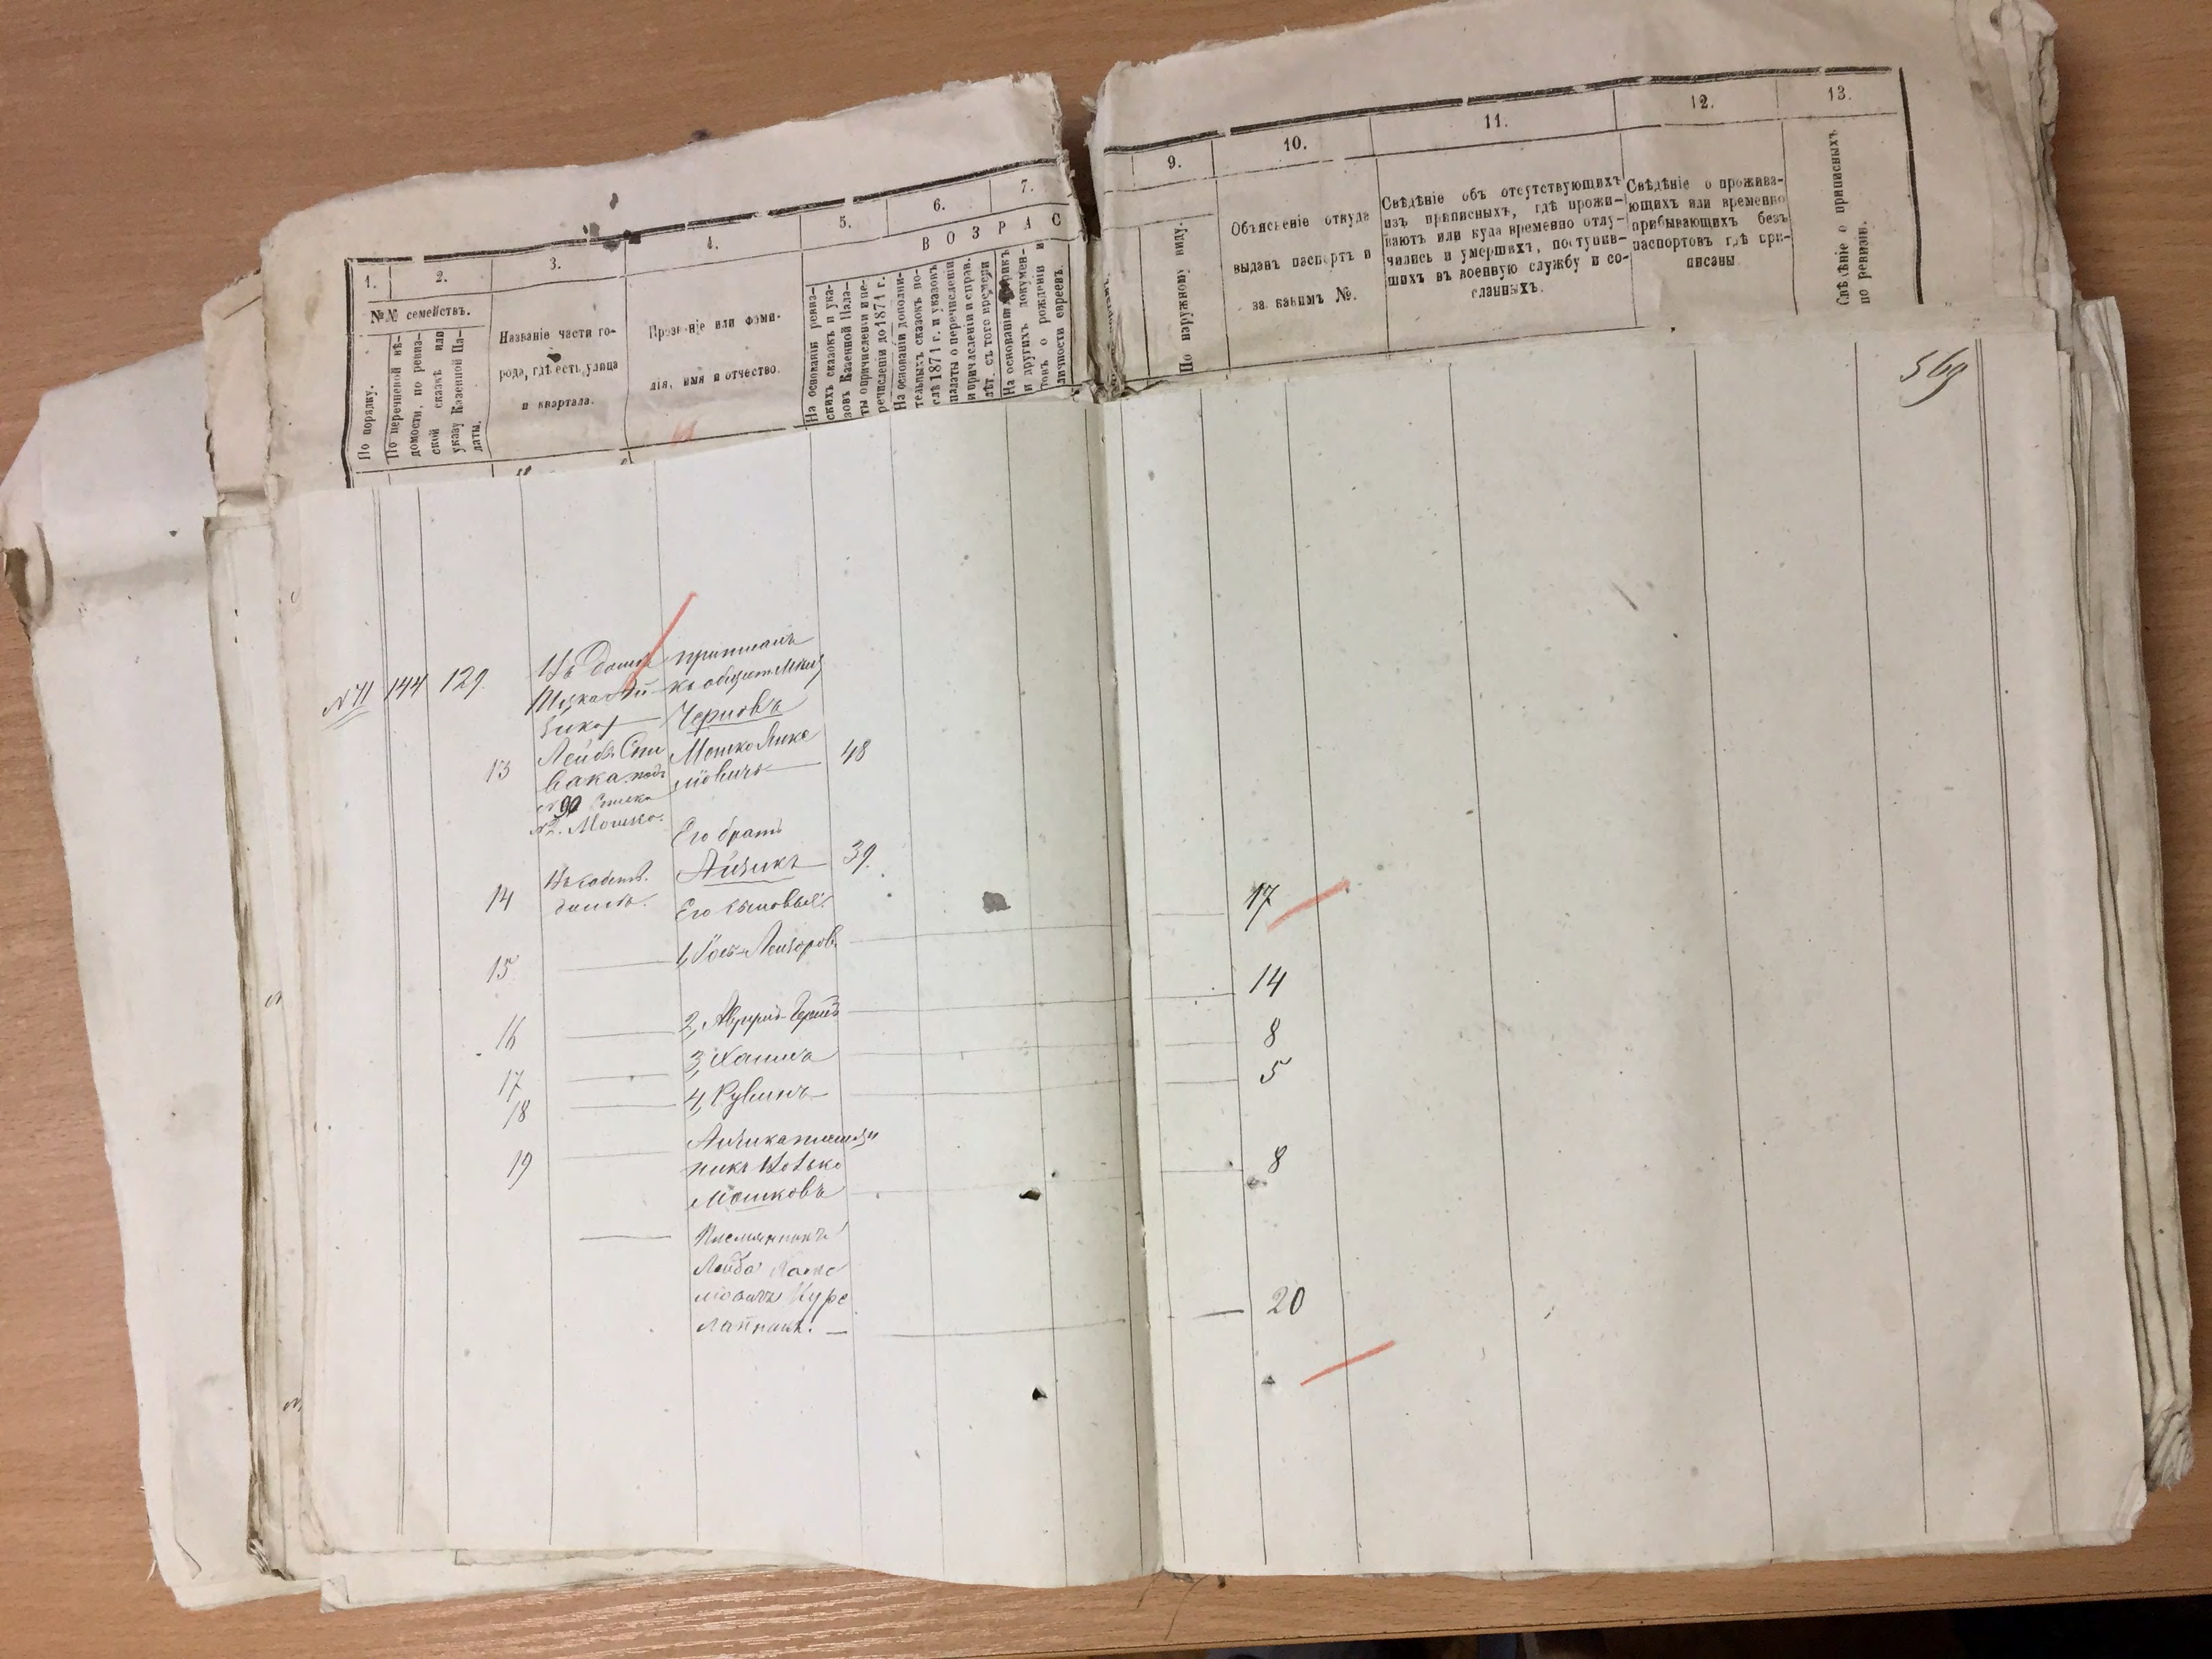 1.
2.
3.
4.
5.
6.
7.
В О З Р А С
№№ семействъ.
По порядку.
По перечневой вѣ-
домости, по ревиз-
ской сказкѣ или
указу Казенной Па-
латы.
Названіе части го-
рода, гдѣ есть улица
и квартала.
Прозваніе или фами-
лія, имя и отчество.
На основаніи ревиз-
скихъ сказокъ и ука-
зовъ Казенной Пала-
ты о причисленіи и пе-
речисленіи до 1871 г.
На основаніи дополни-
тельныхъ сказокъ по-
слѣ 1871 г. и указовъ
палаты о перечисленіи
и причисленіи и справ.
лѣт. съ того времени
На основаніи метрикъ
и другихъ докумен-
товъ о рожденіи и
личности евреевъ.
9.
10.
11.
12.
13.
По наружному виду.
Объясненіе откуда
выданъ паспортъ и
за какимъ №.
Свѣдѣніе объ отсутствующихъ
изъ приписныхъ, гдѣ прожи-
ваютъ или куда временно отлу-
чились и умершихъ, поступив-
шихъ въ военную службу и со-
сланныхъ.
Свѣдѣніе о прожива-
ющихъ или временно
прибывающихъ безъ
паспортовъ гдѣ при-
писаны
Свѣдѣніе о приписныхъ
по ревизіи.
569
144 129
Въ домѣ приписанъ
къ общест.
Черновъ
13 Лейб. Спи Мошко Янке
вака подъліовичъ — 48
№ 90
№ 2. Мошко.
Его братъ
14 Въ собств. Айзикъ — 39.
домѣ. Его сыновья:
15 — 1, Лейзоров. — 17
16 — 2, — 14
17 — 3, Хаимъ — 8
18 — 4, Рувинъ — 5
19 — Айзика племян
никъ
Мошковъ — 8
— Племянникъ
Лейба Янке
ліовичъ Курс
— 20